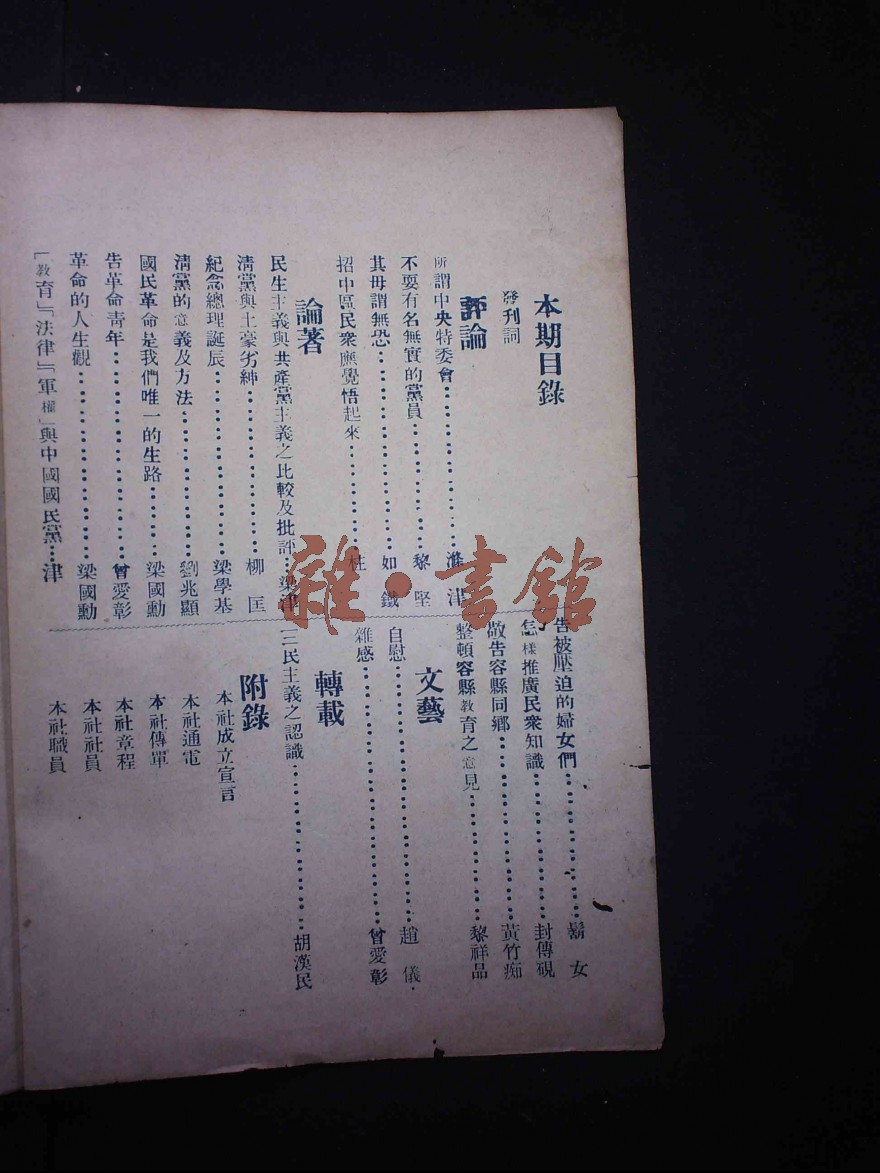 本期目錄
發刊詞
評論
所謂中央特委會
不要有名無實的黨員 黎堅
其毋謂無恐 如鐵
招中區民衆應覺悟起來
論著
民生主義與共產黨主義之比較及批評 梁津
淸黨與土豪劣紳 柳匡
紀念總理誕辰 梁學基
淸黨的意義及方法 劉兆顯
國民革命是我們唯一的生路 梁國勳
告革命靑年 曾愛彰
革命的人生觀 梁國勳
「教育」「法律」「軍權」與中國國民黨 津
告被壓迫的婦女們 鬍女
怎樣推廣民衆知識 封傳硯
敬告容縣同鄉 黃竹痴
整頓容縣教育之意見 黎祥品
文藝
自慰 趙儀
雜感 曾愛彰
轉載
三民主義之認識 胡漢民
附錄
本社成立宣言
本社通電
本社傳單
本社章程
本社社員
本社職員
雜·書館